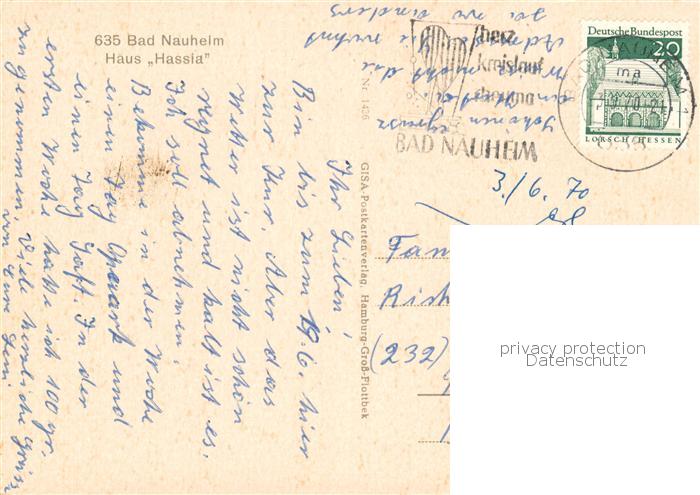 635 Bad Nauheim
Haus „Hassia"
Ihr Lieben,
Bin bis zum 19.6. hier
zur Kur. Aber das
Wetter ist nicht schön
regnet und kalt ist es.
Ich soll abnehmen.
Bekomme in der Woche
einen Tag Quark und
einen Tag Saft. In der
ersten Woche hatte ich 100 gr.
zugenommen. Viele herzliche Grüsse
von
Nr. 1426
GISA-Postkartenverlag, Hamburg-Groß-Flottbek
herz
kreislauf
rheuma
BAD NAUHEIM
Deutsche Bundespost
20
LORSCH/HESSEN
3./6. 70
Fam
Rich
(232)
privacy protection
Datenschutz